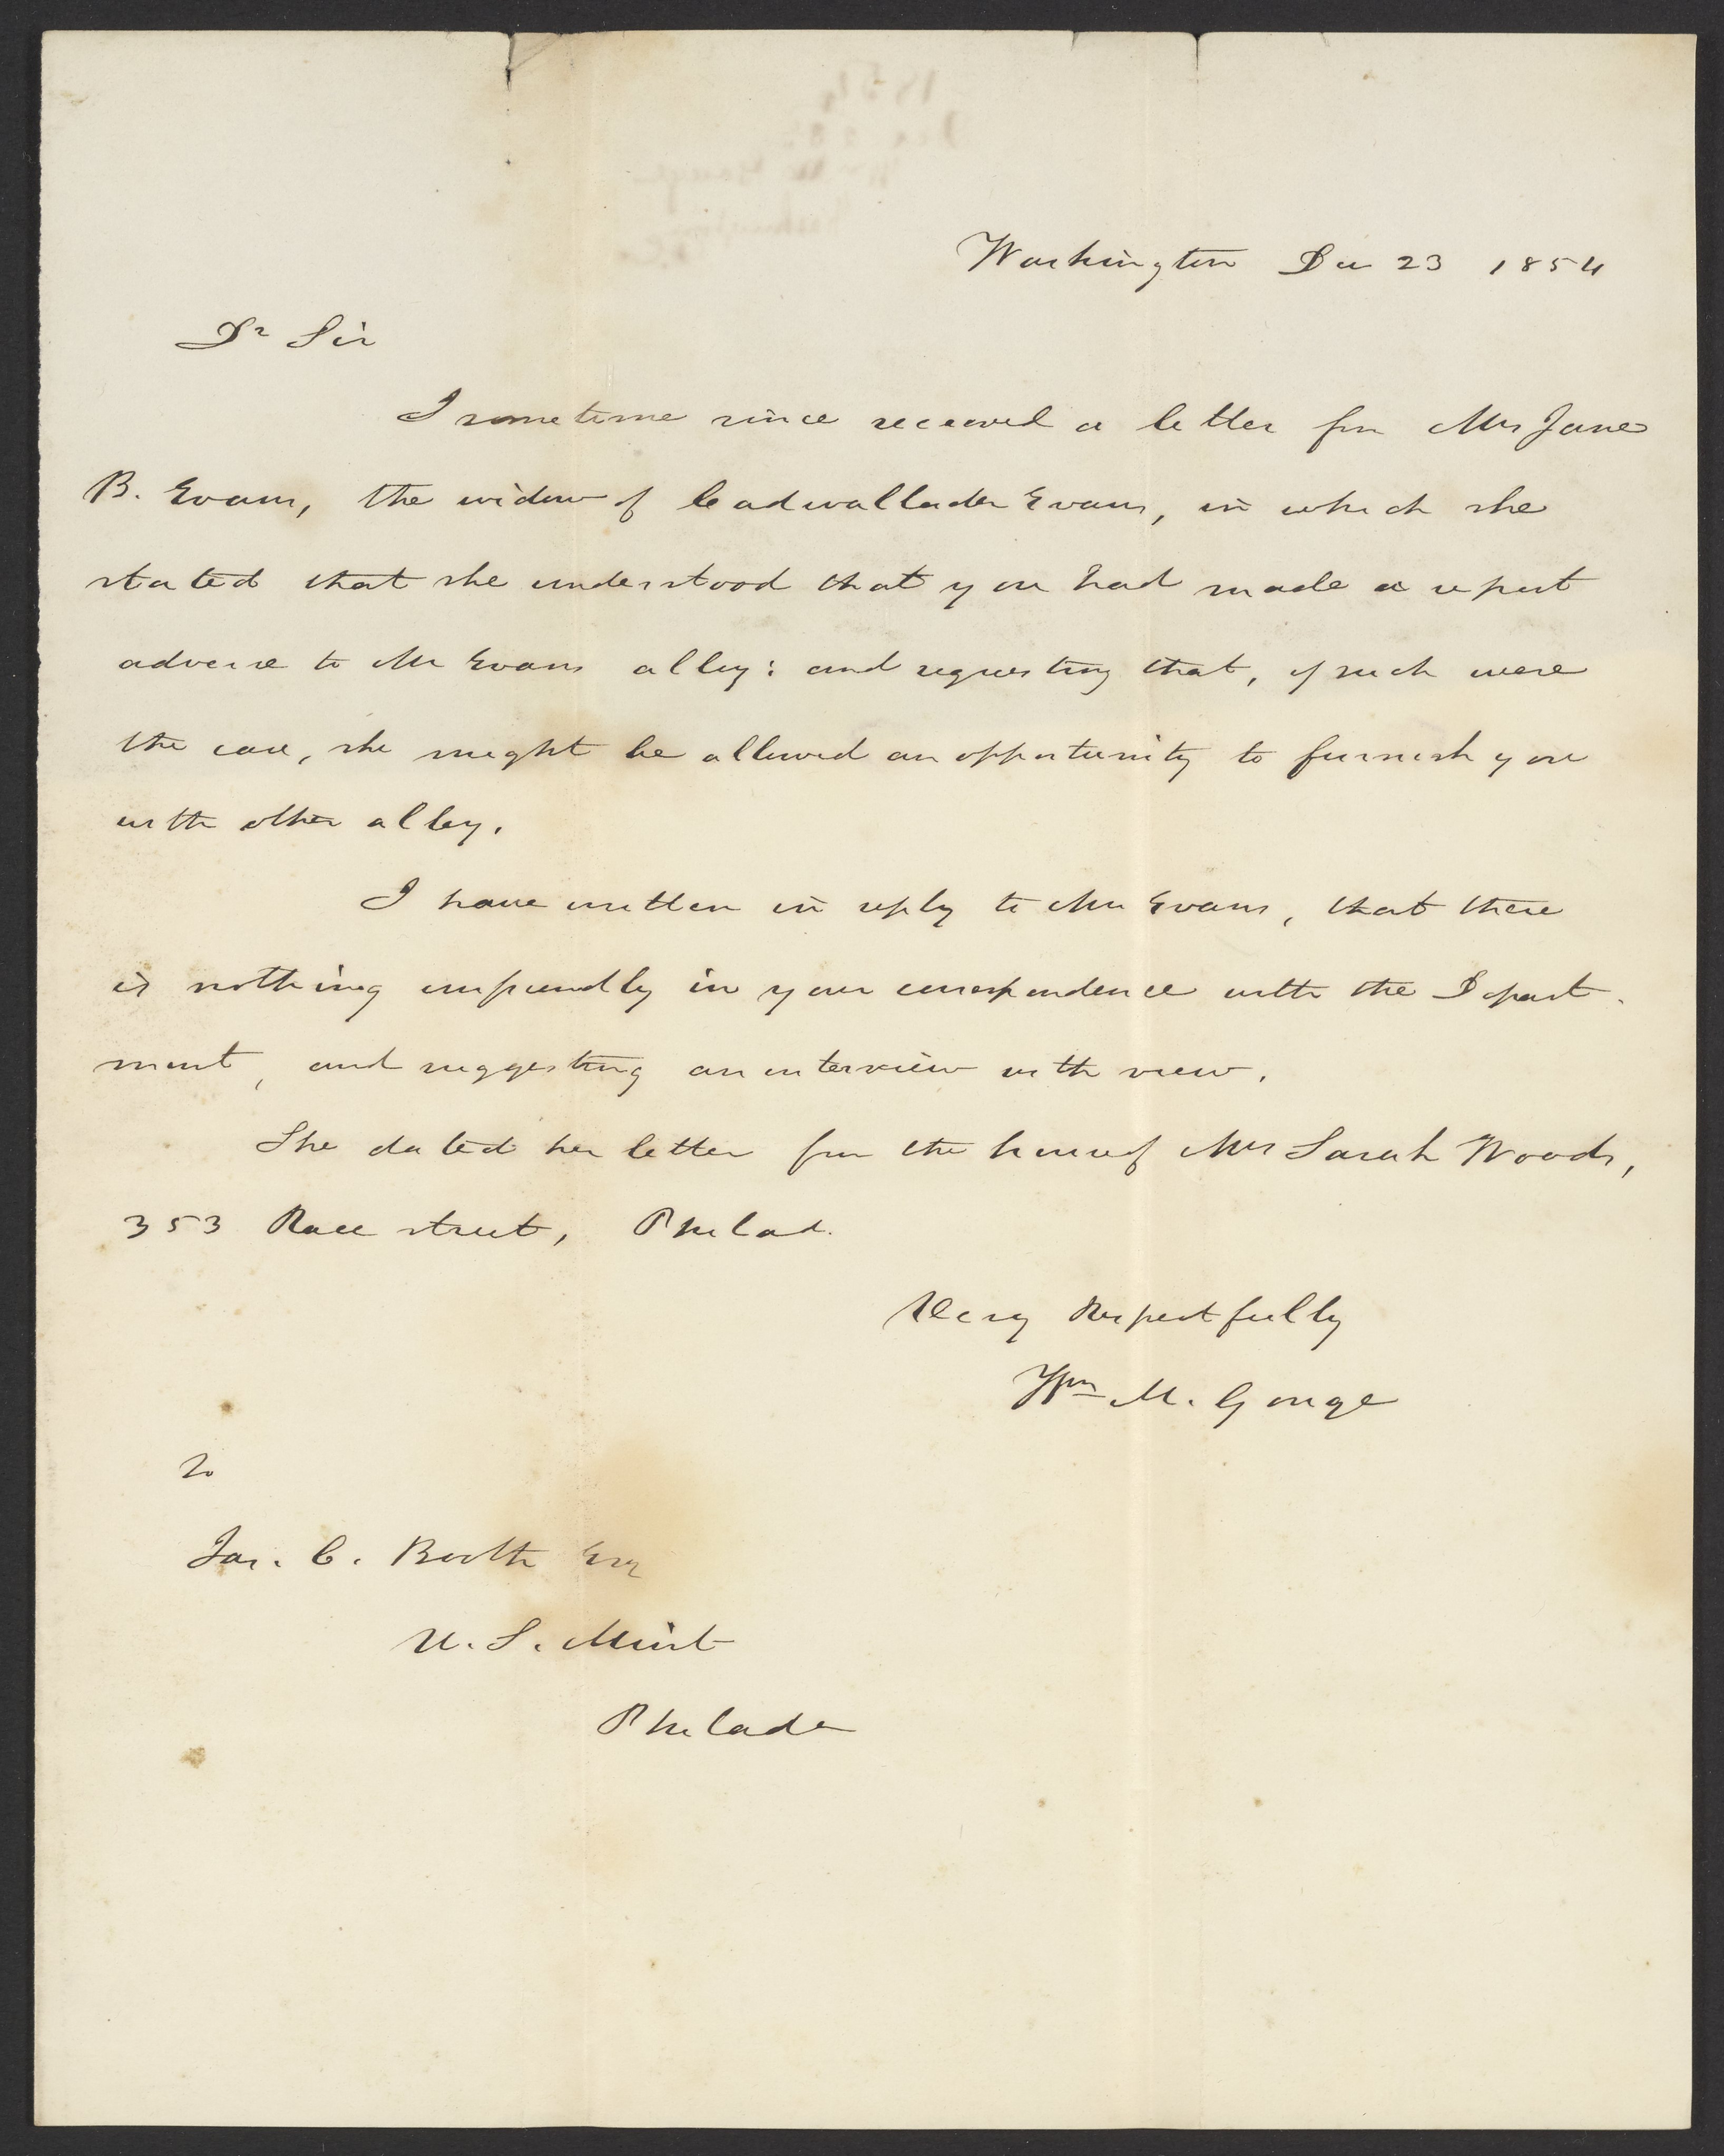 Washington Dec 23 1854
Dr Sir
I sometime since received a letter from Mrs Jane
B. Evans, the widow of Cadwallader Evans, in which she
stated that she understood that you had made a report
adverse to Mr Evans alloy: and requesting that, if such were
the case, she might be allowed an opportunity to furnish you
with other alloy.
I have written in reply to Mrs Evans, that there
is nothing unfriendly in your correspondence with the Depart-
ment, and suggesting an interview with view.
She dated her letter from the house of Mrs Sarah Woods,
353 Race street, Philad.
Very Respectfully
Wm M. Gouge
To
Jas. C. Booth Esq
U. S. Mint
Philada